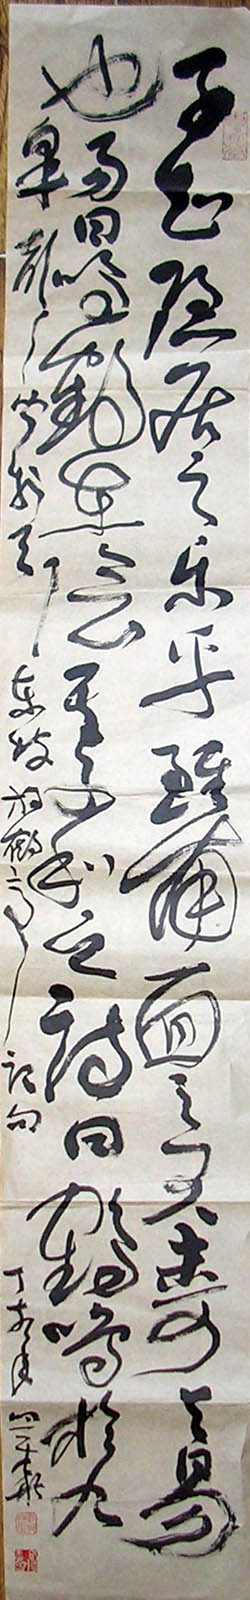 子知隱居之樂乎雖南面之君未可與易
也易曰鳴鶴在陰其子和之詩曰鶴鳴於九
皋聲聞於天 東坡放鶴亭記句 丁亥年